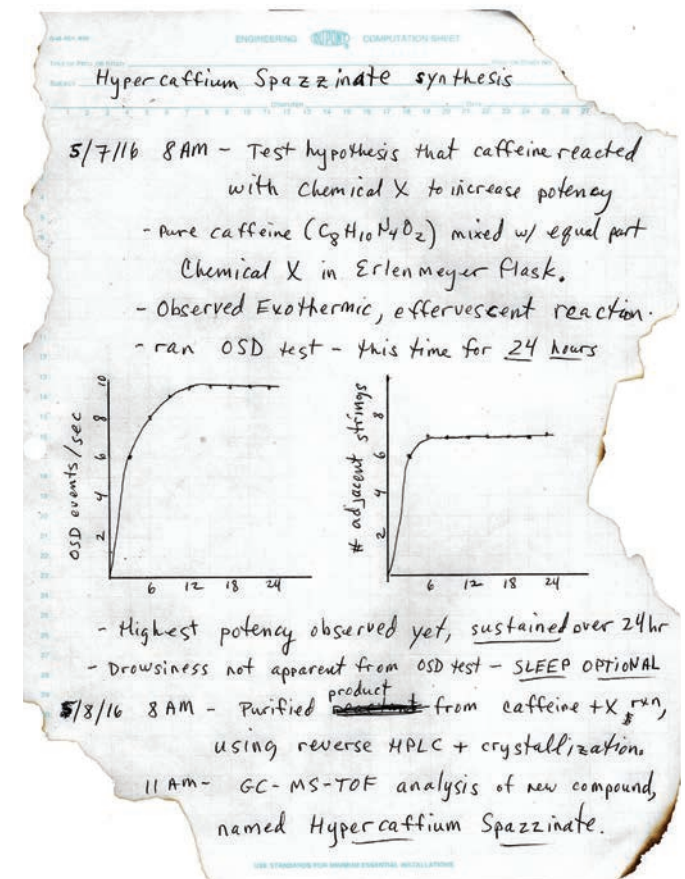 ENGINEERING DU PONT COMPUTATION SHEET
Hypercaffium Spazzinate synthesis
5/7/16 8 AM - Test hypothesis that caffeine reacted
with Chemical X to increase potency
- Pure caffeine (C8H10N4O2) mixed w/ equal part
Chemical X in Erlenmeyer flask.
- Observed Exothermic, effervescent reaction.
- ran OSD test - this time for 24 hours
OSD events/sec
2 4 6 8 10
6 12 18 24
# adjacent strings
2 4 6 8
6 12 18 24
- Highest potency observed yet, sustained over 24hr
- Drowsiness not apparent from OSD test - SLEEP OPTIONAL
5/8/16 8 AM - Purified product from caffeine + X rxn,
using reverse HPLC + crystallization.
11 AM - GC-MS-TOF analysis of new compound,
named Hypercaffium Spazzinate.